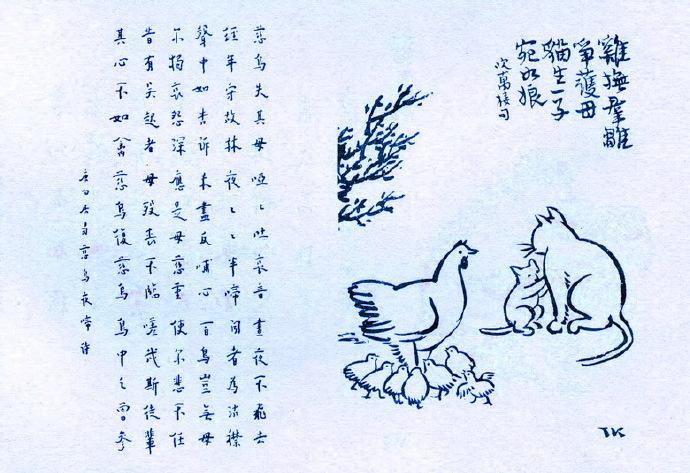 雞撫羣雛
爭護母
貓生一子
宛如娘
吹萬樓句
慈烏失其母啞〻吐哀音晝夜不飛去
經年守故林夜〻〻半啼聞者為沾襟
聲中如告訴未盡反哺心百鳥豈無母
爾獨哀怨深應是母慈重使爾悲不任
昔有吳起者母歿喪不臨嗟哉斯徒輩
其心不如禽慈烏復慈烏鳥中之曾參
唐白居易慈烏夜啼詩
TK